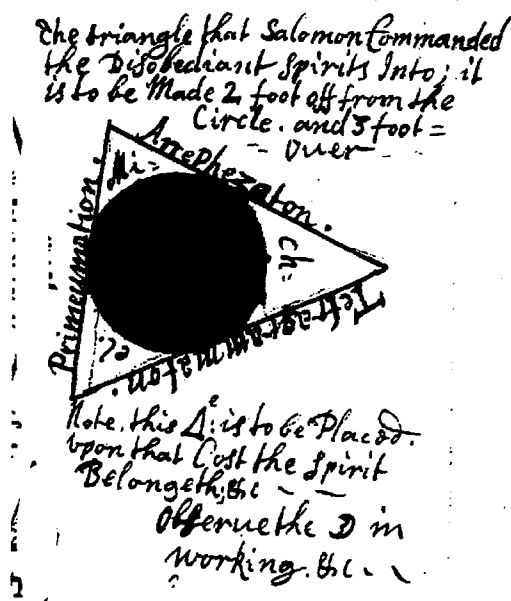 the triangle that Salomon Commanded
the Disobediant spirits Into; it
is to be Made 2 foot off from the
Circle. and 3 foot =
Over
Mi=
Arrephezaton.
Primeumation.
Ch=
el.
Tetragrammaton.
Note, this Δᵉ: is to be Placed.
vpon that Cost the spirit
Belongeth, &c
Obserue the ☽ in
working. &c.